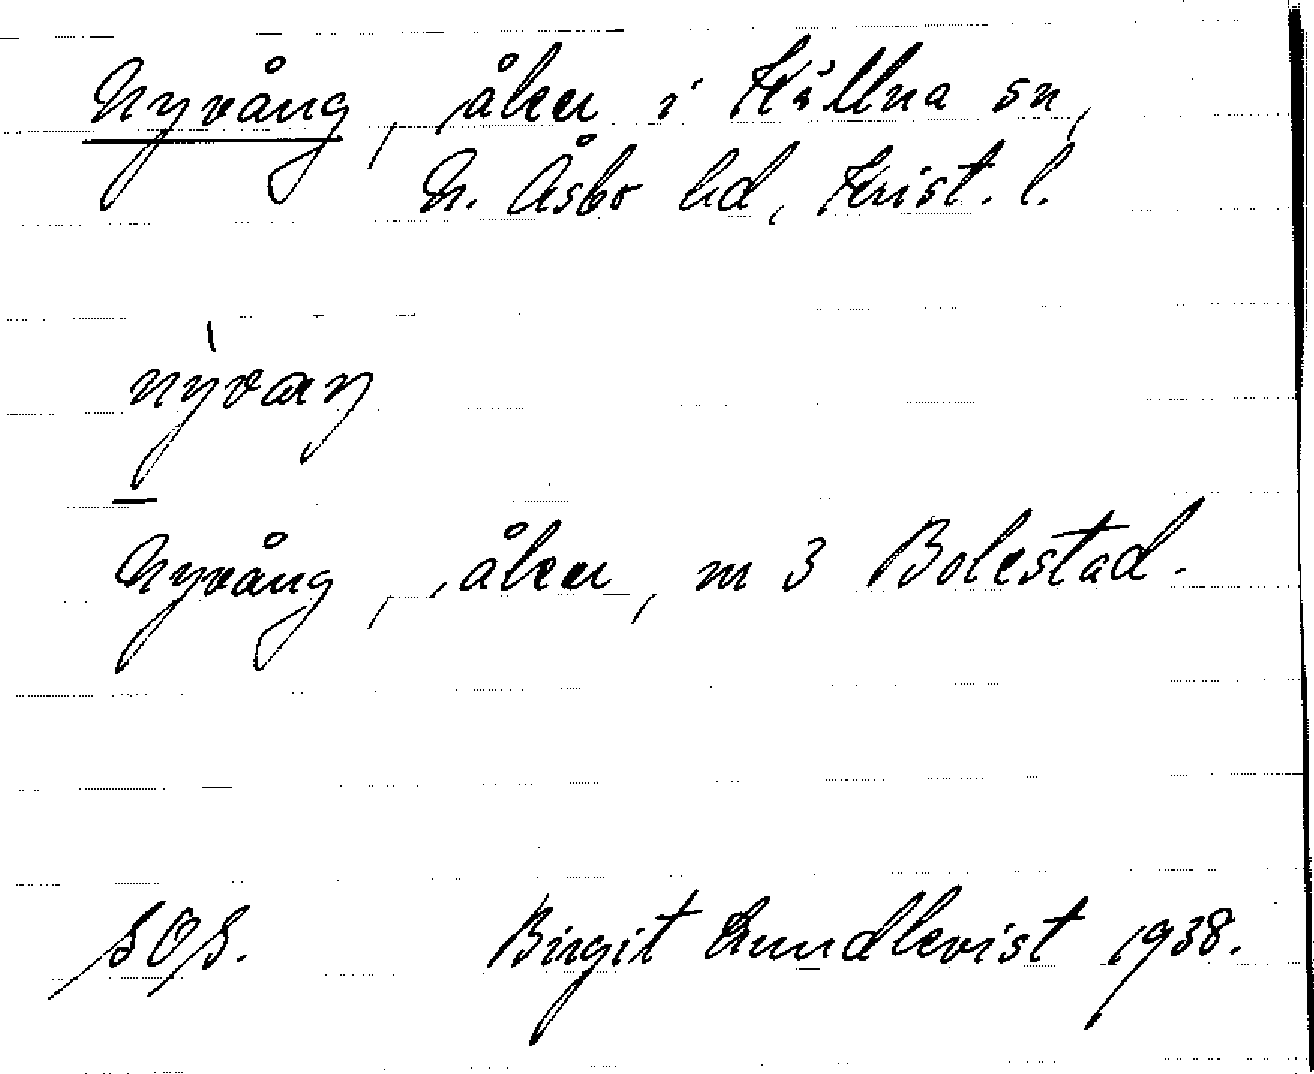 Nyvång, åker i Källna sn,
N. Åsbo hd, Krist. l.
Nyvång, åker, m 3 Bolestad.
SOS. Birgit Lundkvist 1938.